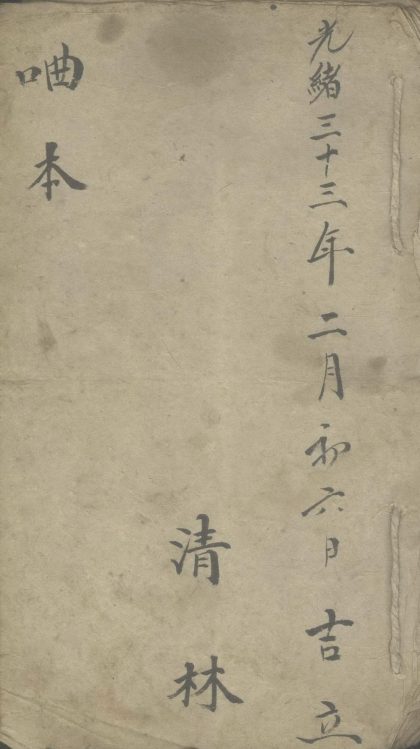 光緒三十三年二月初六日吉立
清林
𠰴本